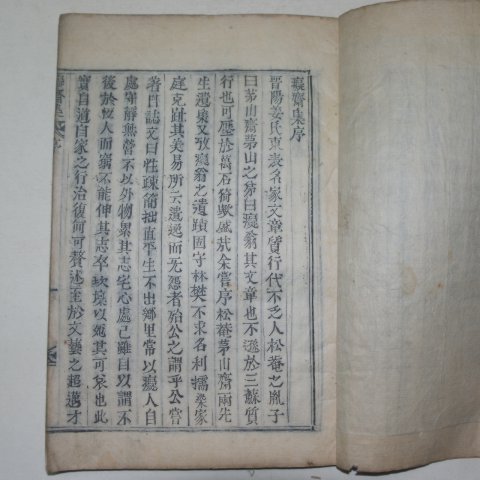 癡齋集序
晋陽姜氏東表名家文章質行代不乏人松菴之胤子
曰茅山齋茅山之弟曰癡翁其文章也不遜於三蘇質
行也可歷於萬石猗歟盛哉余嘗序松菴茅山齋兩先
生遺藁又攷癡翁之遺蹟固守林樊不求名利擩染家
庭克趾其美易所云遺逸而无怨者殆公之謂乎公嘗
著自誌文曰性疎簡拙直平生不出鄕里常以癡人自
處守靜無營不以外物累其志宅心處己雖自以謂不
後於恒人而窮不能伸其志卒坎壈以終其可哀也此
實自道自家之行治復何可贅述至於文藝之超邁才
癡齋集序